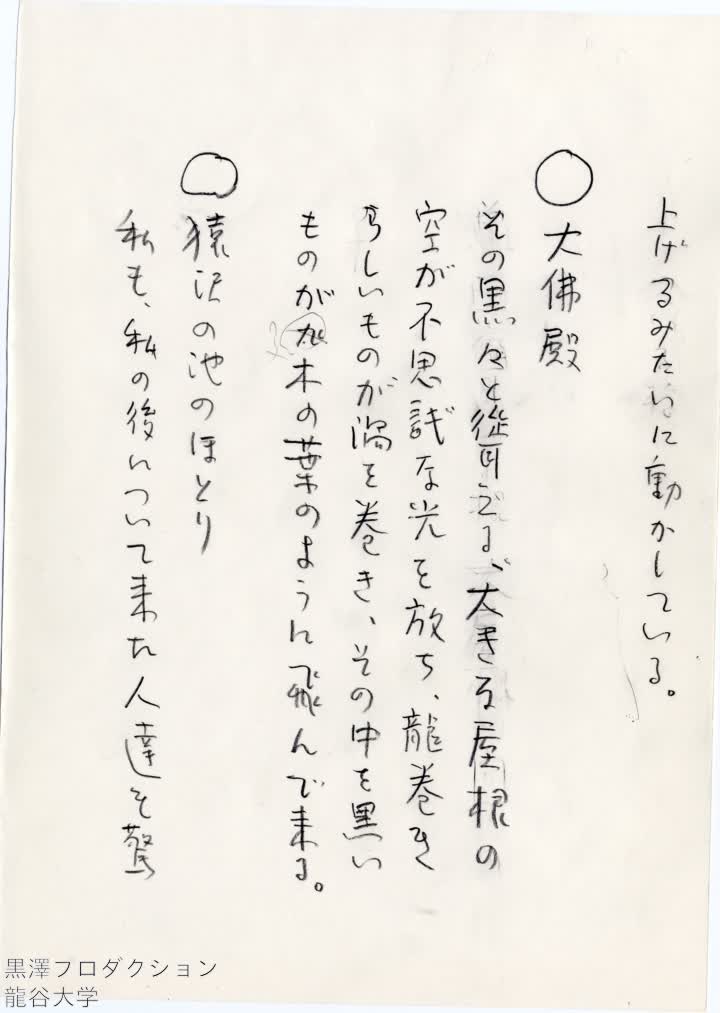 上げるみたいに動かしている。
○大佛殿
その黒々と聳える、大きな屋根の
空が不思議な光を放ち、龍巻き
らしいものが渦を巻き、その中を黒い
ものが木の葉のように飛んで来る。
○猿沢の池のほとり
私も、私の後について来た人達も驚
黒澤プロダクション
龍谷大学